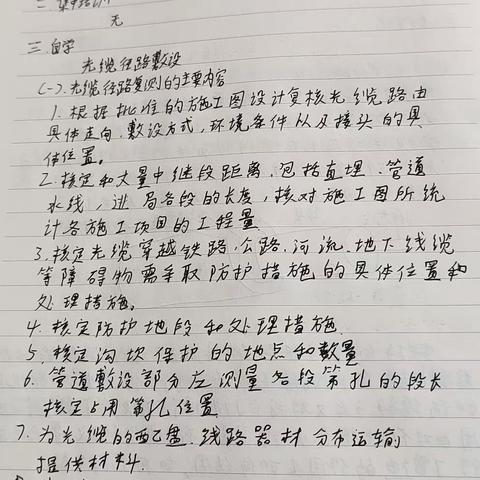 二.集中培训
无
三.自学
光缆径路敷设
(一).光缆径路复测的主要内容
1.根据批准的施工图设计复核光缆路由
具体走向、敷设方式,环境条件以及接头的具
体位置。
2.核定和丈量中继段距离,包括直埋、管道
水线,进局各段的长度,核对施工图所统
计各施工项目的工程量
3.核定光缆穿越铁路、公路、河流、地下线缆
等障碍物需采取防护措施的具体位置和
处理措施。
4.核定防护地段和处理措施.
5.核定沟坎保护的地点和数量
6.管道敷设部分应测量各段管孔的段长
核定占用管孔位置
7.为光缆的配盘、线路器材分布运输
提供材料.